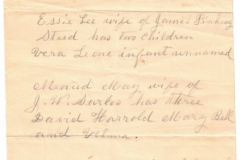 Essie Lee wife of James Pinkney
Steed has two children
Vera Leone infant unnamed
Merrid May wife of
J. W. Surles has three
David Harrold Mary Bell
and Velma.